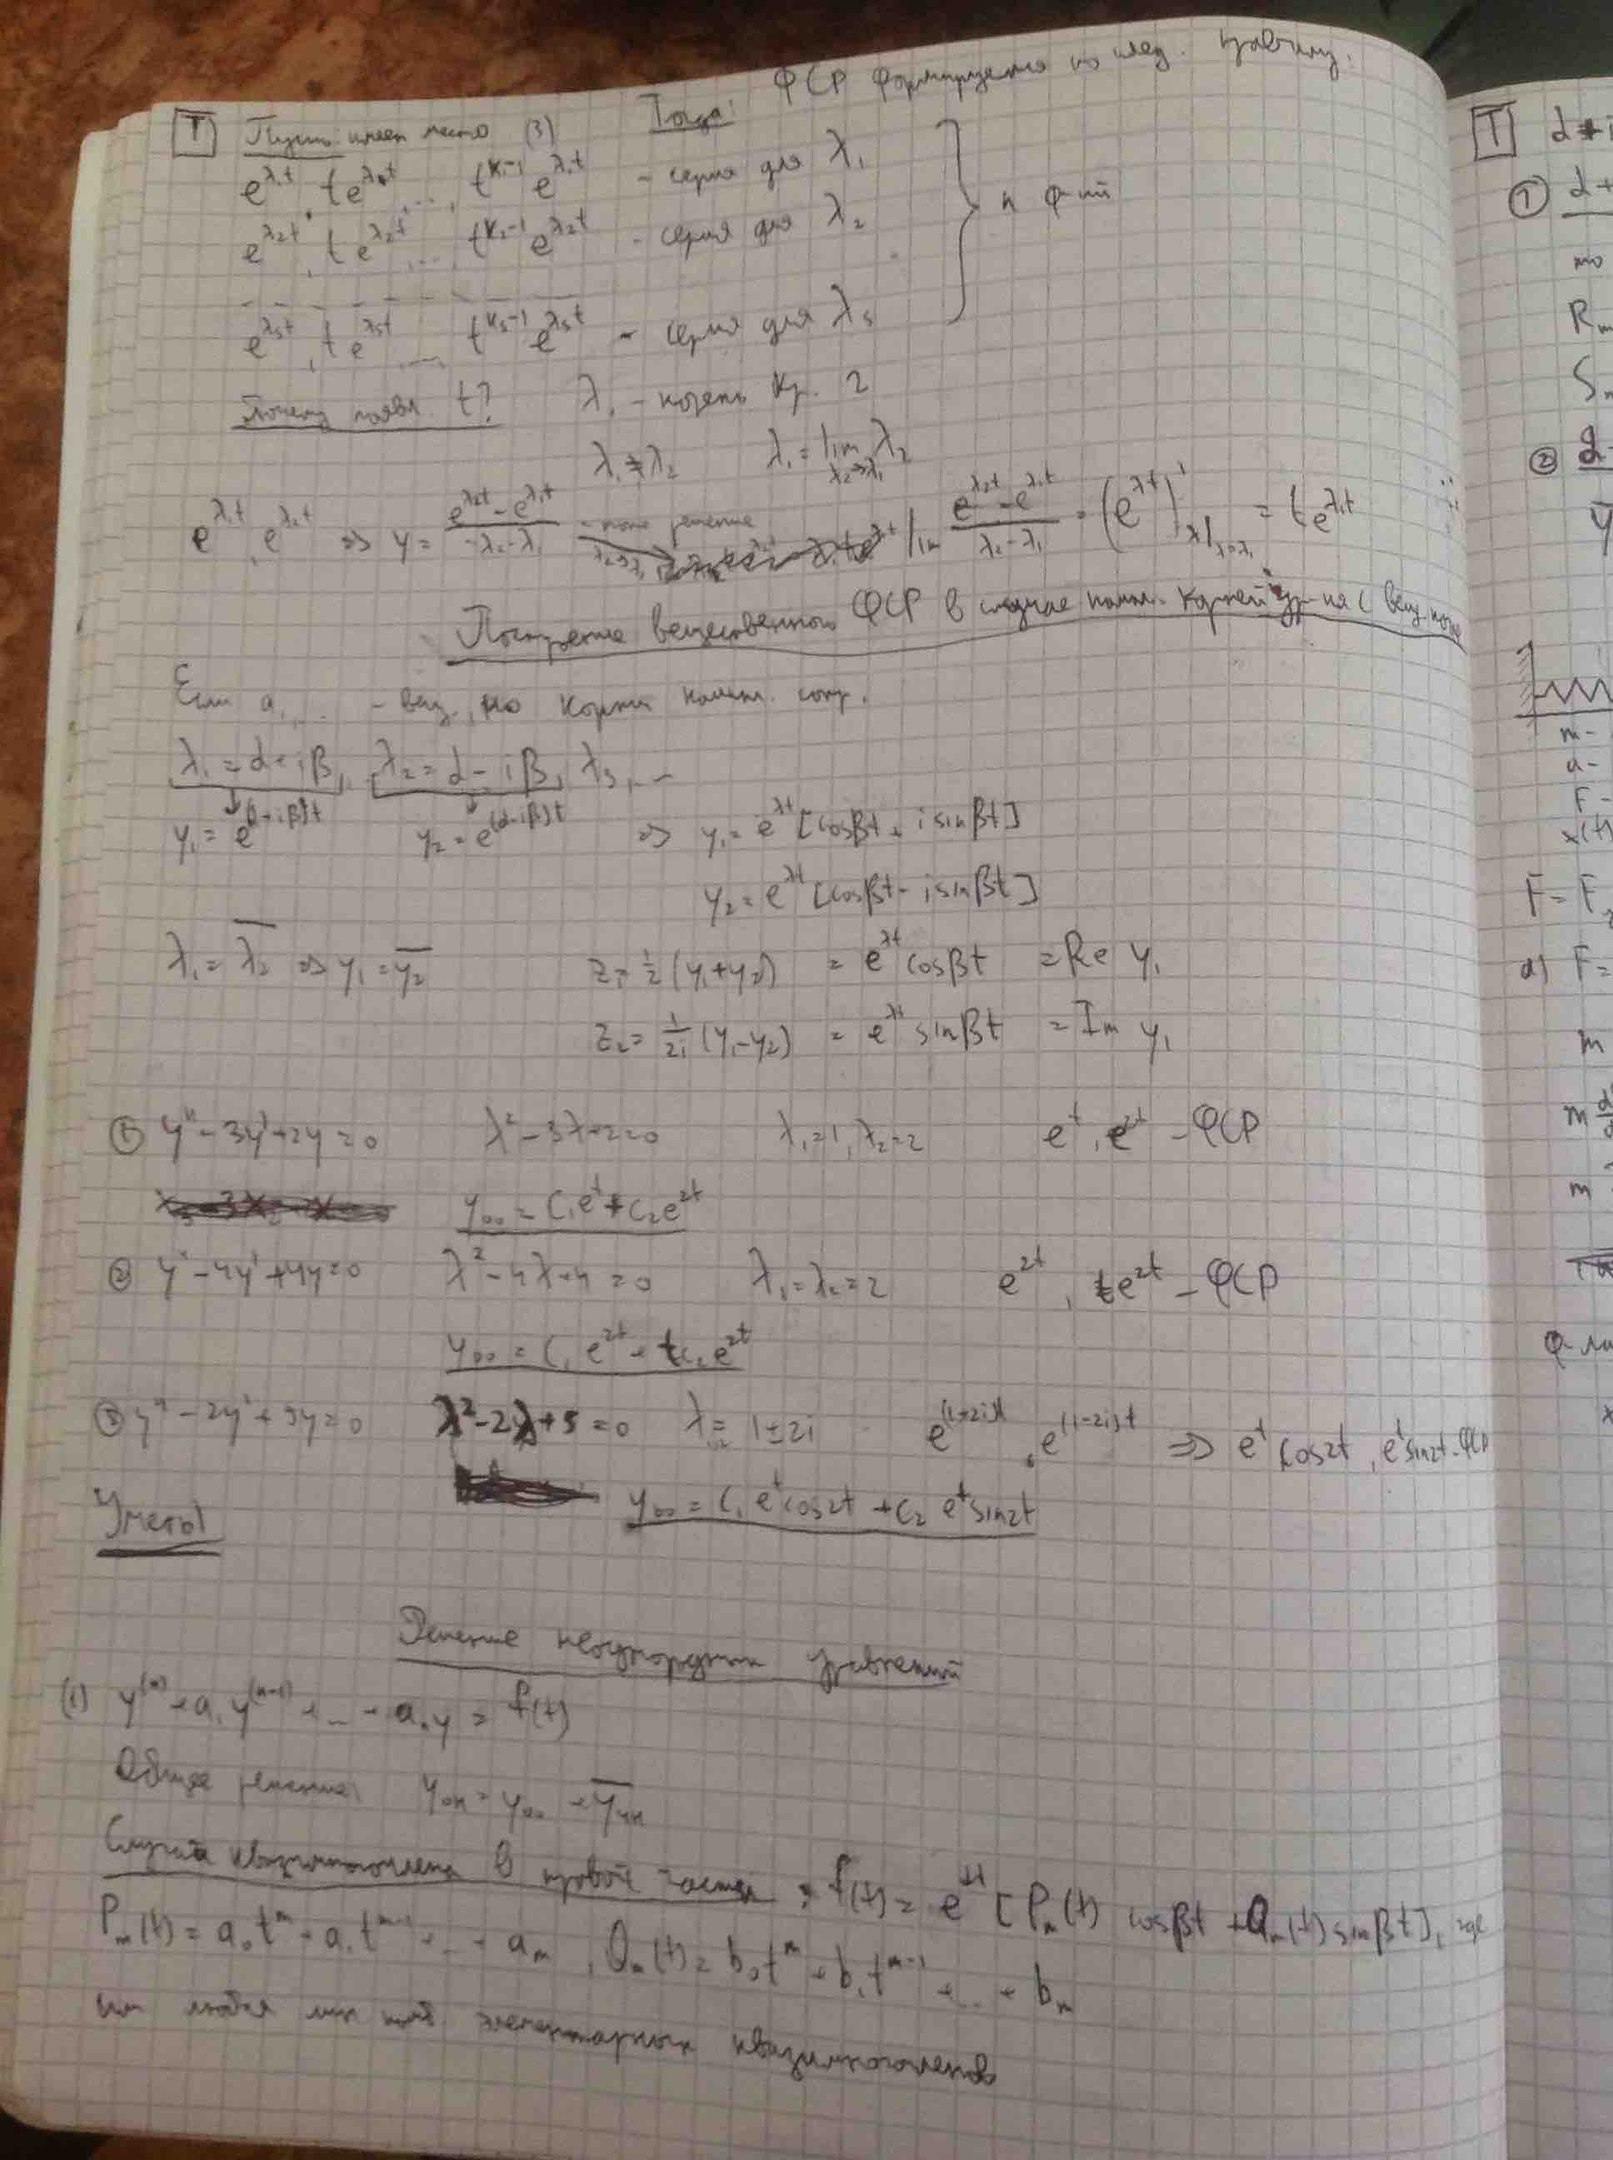 Т Пусть имеет место (3) Тогда: ФСР формируется по след. правилу.
e^{λ₁t}, te^{λ₁t}, ..., t^{k₁-1} e^{λ₁t} - серия для λ₁
e^{λ₂t}, te^{λ₂t}, ..., t^{k₂-1} e^{λ₂t} - серия для λ₂ } n ф-ий
e^{λₛt}, te^{λₛt}, ..., t^{kₛ-1} e^{λₛt} - серия для λₛ
Почему появл. t? λ₁ - корень кр. 2
λ₁ ≠ λ₂ λ₁ = lim_{λ₂→λ₁} λ₂
e^{λ₁t}, e^{λ₂t} ⇒ y = (e^{λ₂t} - e^{λ₁t})/(λ₂ - λ₁) - тоже решение λ₂→λ₁ lim (e^{λ₂t} - e^{λ₁t})/(λ₂ - λ₁) = (e^{λt})'_λ|_{λ=λ₁} = te^{λ₁t}
Построение вещественного ФСР в случае компл. корней ур-ия с вещ.
Если a₁, ... - вещ., но корни компл. сопр.
λ₁ = α + iβ, λ₂ = α - iβ, λ₃, ...
y₁ = e^{(α+iβ)t} y₂ = e^{(α-iβ)t} ⇒ y₁ = e^{λt} [cosβt + i sinβt]
y₂ = e^{λt} [cosβt - i sinβt]
λ₁ = \overline{λ₂} ⇒ y₁ = \overline{y₂} z₁ = ½ (y₁+y₂) = e^{λt} cosβt = Re y₁
z₂ = 1/2i (y₁-y₂) = e^{λt} sinβt = Im y₁
① y'' - 3y' + 2y = 0 λ² - 3λ + 2 = 0 λ₁ = 1, λ₂ = 2 e^t, e^{2t} - ФСР
y₀₀ = C₁e^t + C₂e^{2t}
② y'' - 4y' + 4y = 0 λ² - 4λ + 4 = 0 λ₁ = λ₂ = 2 e^{2t}, te^{2t} - ФСР
y₀₀ = C₁ e^{2t} + tC₂e^{2t}
③ y'' - 2y' + 5y = 0 λ² - 2λ + 5 = 0 λ₁₂ = 1 ± 2i e^{(1+2i)t}, e^{(1-2i)t} ⇒ e^t cos2t, e^t sin2t - ФСР
y₀₀ = C₁ e^t cos2t + C₂ e^t sin2t
Решение неоднородных уравнений
(1) y^{(n)} + a₁y^{(n-1)} + ... + aₙy = f(t)
Общее решение y_{он} = y₀₀ + \overline{y}_{чн}
Случай квазимногочлена в правой части: f(t) = e^{αt} [Pₘ(t) cosβt + Qₘ(t) sinβt], где
Pₘ(t) = a₀t^m + a₁t^{m-1} + ... + aₘ, Qₘ(t) = b₀t^m + b₁t^{m-1} + ... + bₘ
или любая лин комб элементарных квазимногочленов
Т
①
②